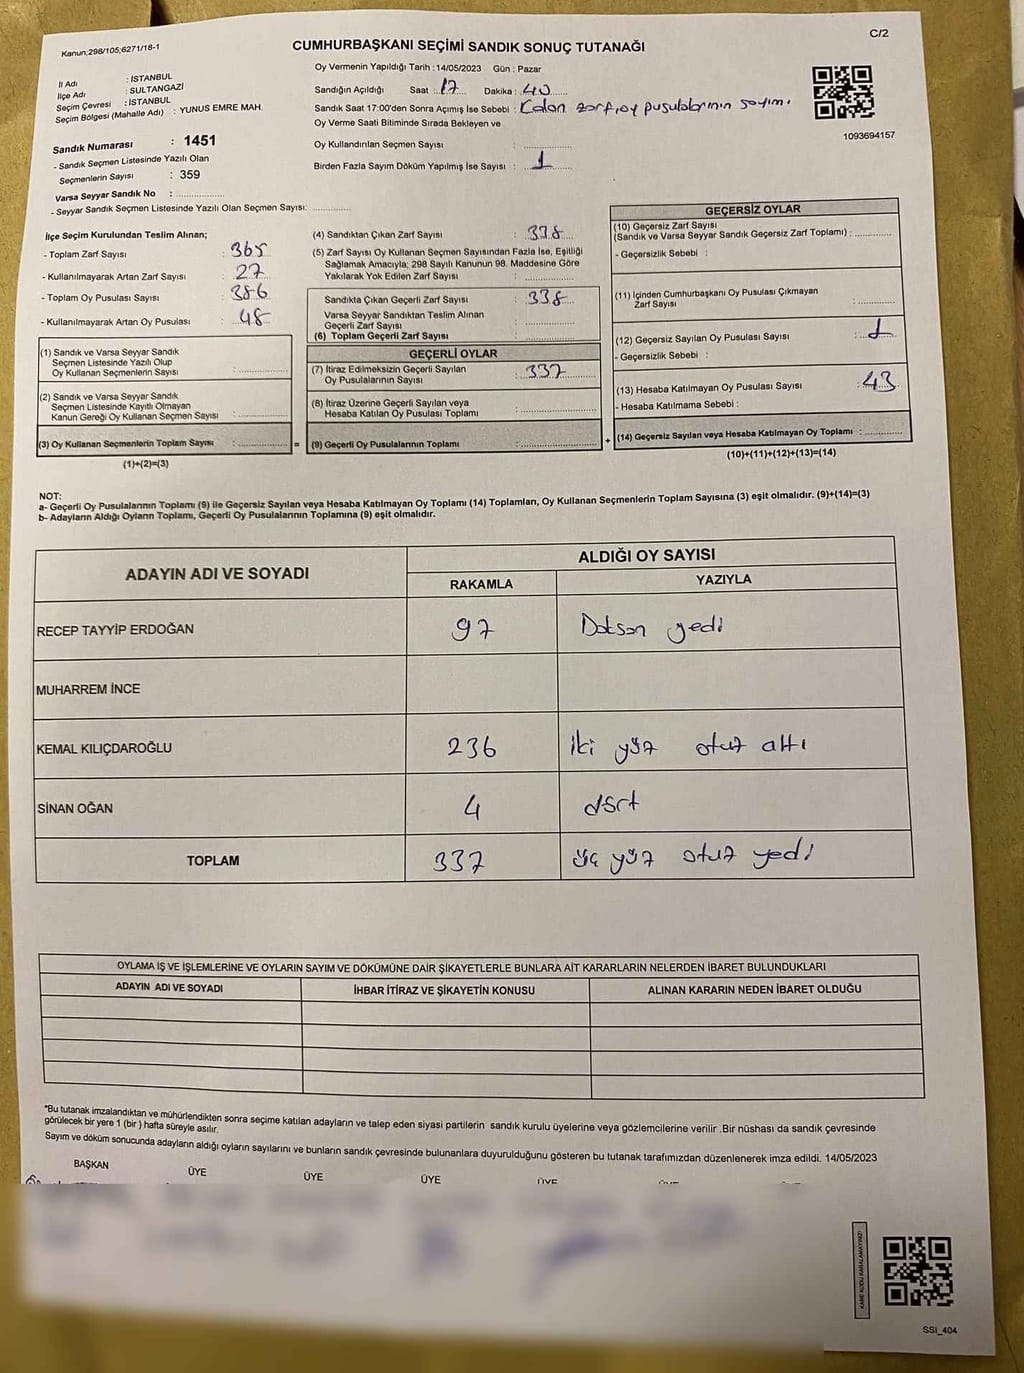 Kanun;298/105;6271/18-1
C/2
CUMHURBAŞKANI SEÇİMİ SANDIK SONUÇ TUTANAĞI
İl Adı : İSTANBUL
İlçe Adı : SULTANGAZİ
Seçim Çevresi : İSTANBUL
Seçim Bölgesi (Mahalle Adı) : YUNUS EMRE MAH.
Sandık Numarası : 1451
- Sandık Seçmen Listesinde Yazılı Olan
Seçmenlerin Sayısı : 359
Varsa Seyyar Sandık No : ..................
- Seyyar Sandık Seçmen Listesinde Yazılı Olan Seçmen Sayısı: ..............
Oy Vermenin Yapıldığı Tarih : 14/05/2023 Gün : Pazar
Sandığın Açıldığı Saat : 17 Dakika : 40
Sandık Saat 17:00'den Sonra Açımış İse Sebebi : Kalan zarf, oy pusulalarının sayımı
Oy Verme Saati Bitiminde Sırada Bekleyen ve
Oy Kullandırılan Seçmen Sayısı : ..................
Birden Fazla Sayım Döküm Yapılmış İse Sayısı : 1
1093694157
İlçe Seçim Kurulundan Teslim Alınan;
- Toplam Zarf Sayısı : 365
- Kullanılmayarak Artan Zarf Sayısı : 27
- Toplam Oy Pusulası Sayısı : 386
- Kullanılmayarak Artan Oy Pusulası : 48
(1) Sandık ve Varsa Seyyar Sandık
Seçmen Listesinde Yazılı Olup
Oy Kullanan Seçmenlerin Sayısı : ..............
(2) Sandık ve Varsa Seyyar Sandık
Seçmen Listesinde Kayıtlı Olmayan
Kanun Gereği Oy Kullanan Seçmen Sayısı : ..............
(3) Oy Kullanan Seçmenlerin Toplam Sayısı : .............. =
(1)+(2)=(3)
(4) Sandıktan Çıkan Zarf Sayısı : 338
(5) Zarf Sayısı Oy Kullanan Seçmen Sayısından Fazla İse, Eşitliği
Sağlamak Amacıyla; 298 Sayılı Kanunun 98. Maddesine Göre
Yakılarak Yok Edilen Zarf Sayısı : ..............
Sandıkta Çıkan Geçerli Zarf Sayısı : 338
Varsa Seyyar Sandıktan Teslim Alınan
Geçerli Zarf Sayısı : ..............
(6) Toplam Geçerli Zarf Sayısı : ..............
GEÇERLİ OYLAR
(7) İtiraz Edilmeksizin Geçerli Sayılan
Oy Pusulalarının Sayısı : 337
(8) İtiraz Üzerine Geçerli Sayılan veya
Hesaba Katılan Oy Pusulası Toplamı : ..............
(9) Geçerli Oy Pusulalarının Toplamı : .............. +
GEÇERSİZ OYLAR
(10) Geçersiz Zarf Sayısı
(Sandık ve Varsa Seyyar Sandık Geçersiz Zarf Toplamı) : ............
- Geçersizlik Sebebi :
(11) İçinden Cumhurbaşkanı Oy Pusulası Çıkmayan
Zarf Sayısı : ............
(12) Geçersiz Sayılan Oy Pusulası Sayısı : 1
- Geçersizlik Sebebi :
(13) Hesaba Katılmayan Oy Pusulası Sayısı : 43
- Hesaba Katılmama Sebebi :
(14) Geçersiz Sayılan veya Hesaba Katılmayan Oy Toplamı : ............
(10)+(11)+(12)+(13)=(14)
NOT:
a- Geçerli Oy Pusulalarının Toplamı (9) ile Geçersiz Sayılan veya Hesaba Katılmayan Oy Toplamı (14) Toplamları, Oy Kullanan Seçmenlerin Toplam Sayısına (3) eşit olmalıdır. (9)+(14)=(3)
b- Adayların Aldığı Oyların Toplamı, Geçerli Oy Pusulalarının Toplamına (9) eşit olmalıdır.
ADAYIN ADI VE SOYADI ALDIĞI OY SAYISI
RAKAMLA YAZIYLA
RECEP TAYYİP ERDOĞAN 97 Doksan yedi
MUHARREM İNCE
KEMAL KILIÇDAROĞLU 236 iki yüz otuz altı
SİNAN OĞAN 4 dört
TOPLAM 337 üç yüz otuz yedi
OYLAMA İŞ VE İŞLEMLERİNE VE OYLARIN SAYIM VE DÖKÜMÜNE DAİR ŞİKAYETLERLE BUNLARA AİT KARARLARIN NELERDEN İBARET BULUNDUKLARI
ADAYIN ADI VE SOYADI İHBAR İTİRAZ VE ŞİKAYETİN KONUSU ALINAN KARARIN NEDEN İBARET OLDUĞU
*Bu tutanak imzalandıktan ve mühürlendikten sonra seçime katılan adayların ve talep eden siyasi partilerin sandık kurulu üyelerine veya gözlemcilerine verilir .Bir nüshası da sandık çevresinde
görülecek bir yere 1 (bir ) hafta süreyle asılır.
Sayım ve döküm sonucunda adayların aldığı oyların sayılarını ve bunların sandık çevresinde bulunanlara duyurulduğunu gösteren bu tutanak tarafımızdan düzenlenerek imza edildi. 14/05/2023
BAŞKAN ÜYE ÜYE ÜYE ÜYE
KARE KODU KARALAMAYINIZ!
SSI_404